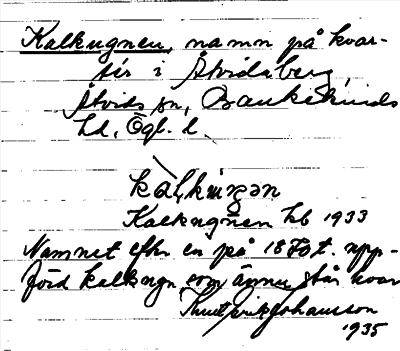 Kalkugnen, namn på kvar-
ter i Åtvidaberg,
Åtvids sn, Bankekinds
hd, Ögl. l.
Kalkugnen hb 1933
Namnet efter en på 1870 t. upp-
förd kalkugn som ännu står kvar
Knut Erik Johansson
1935